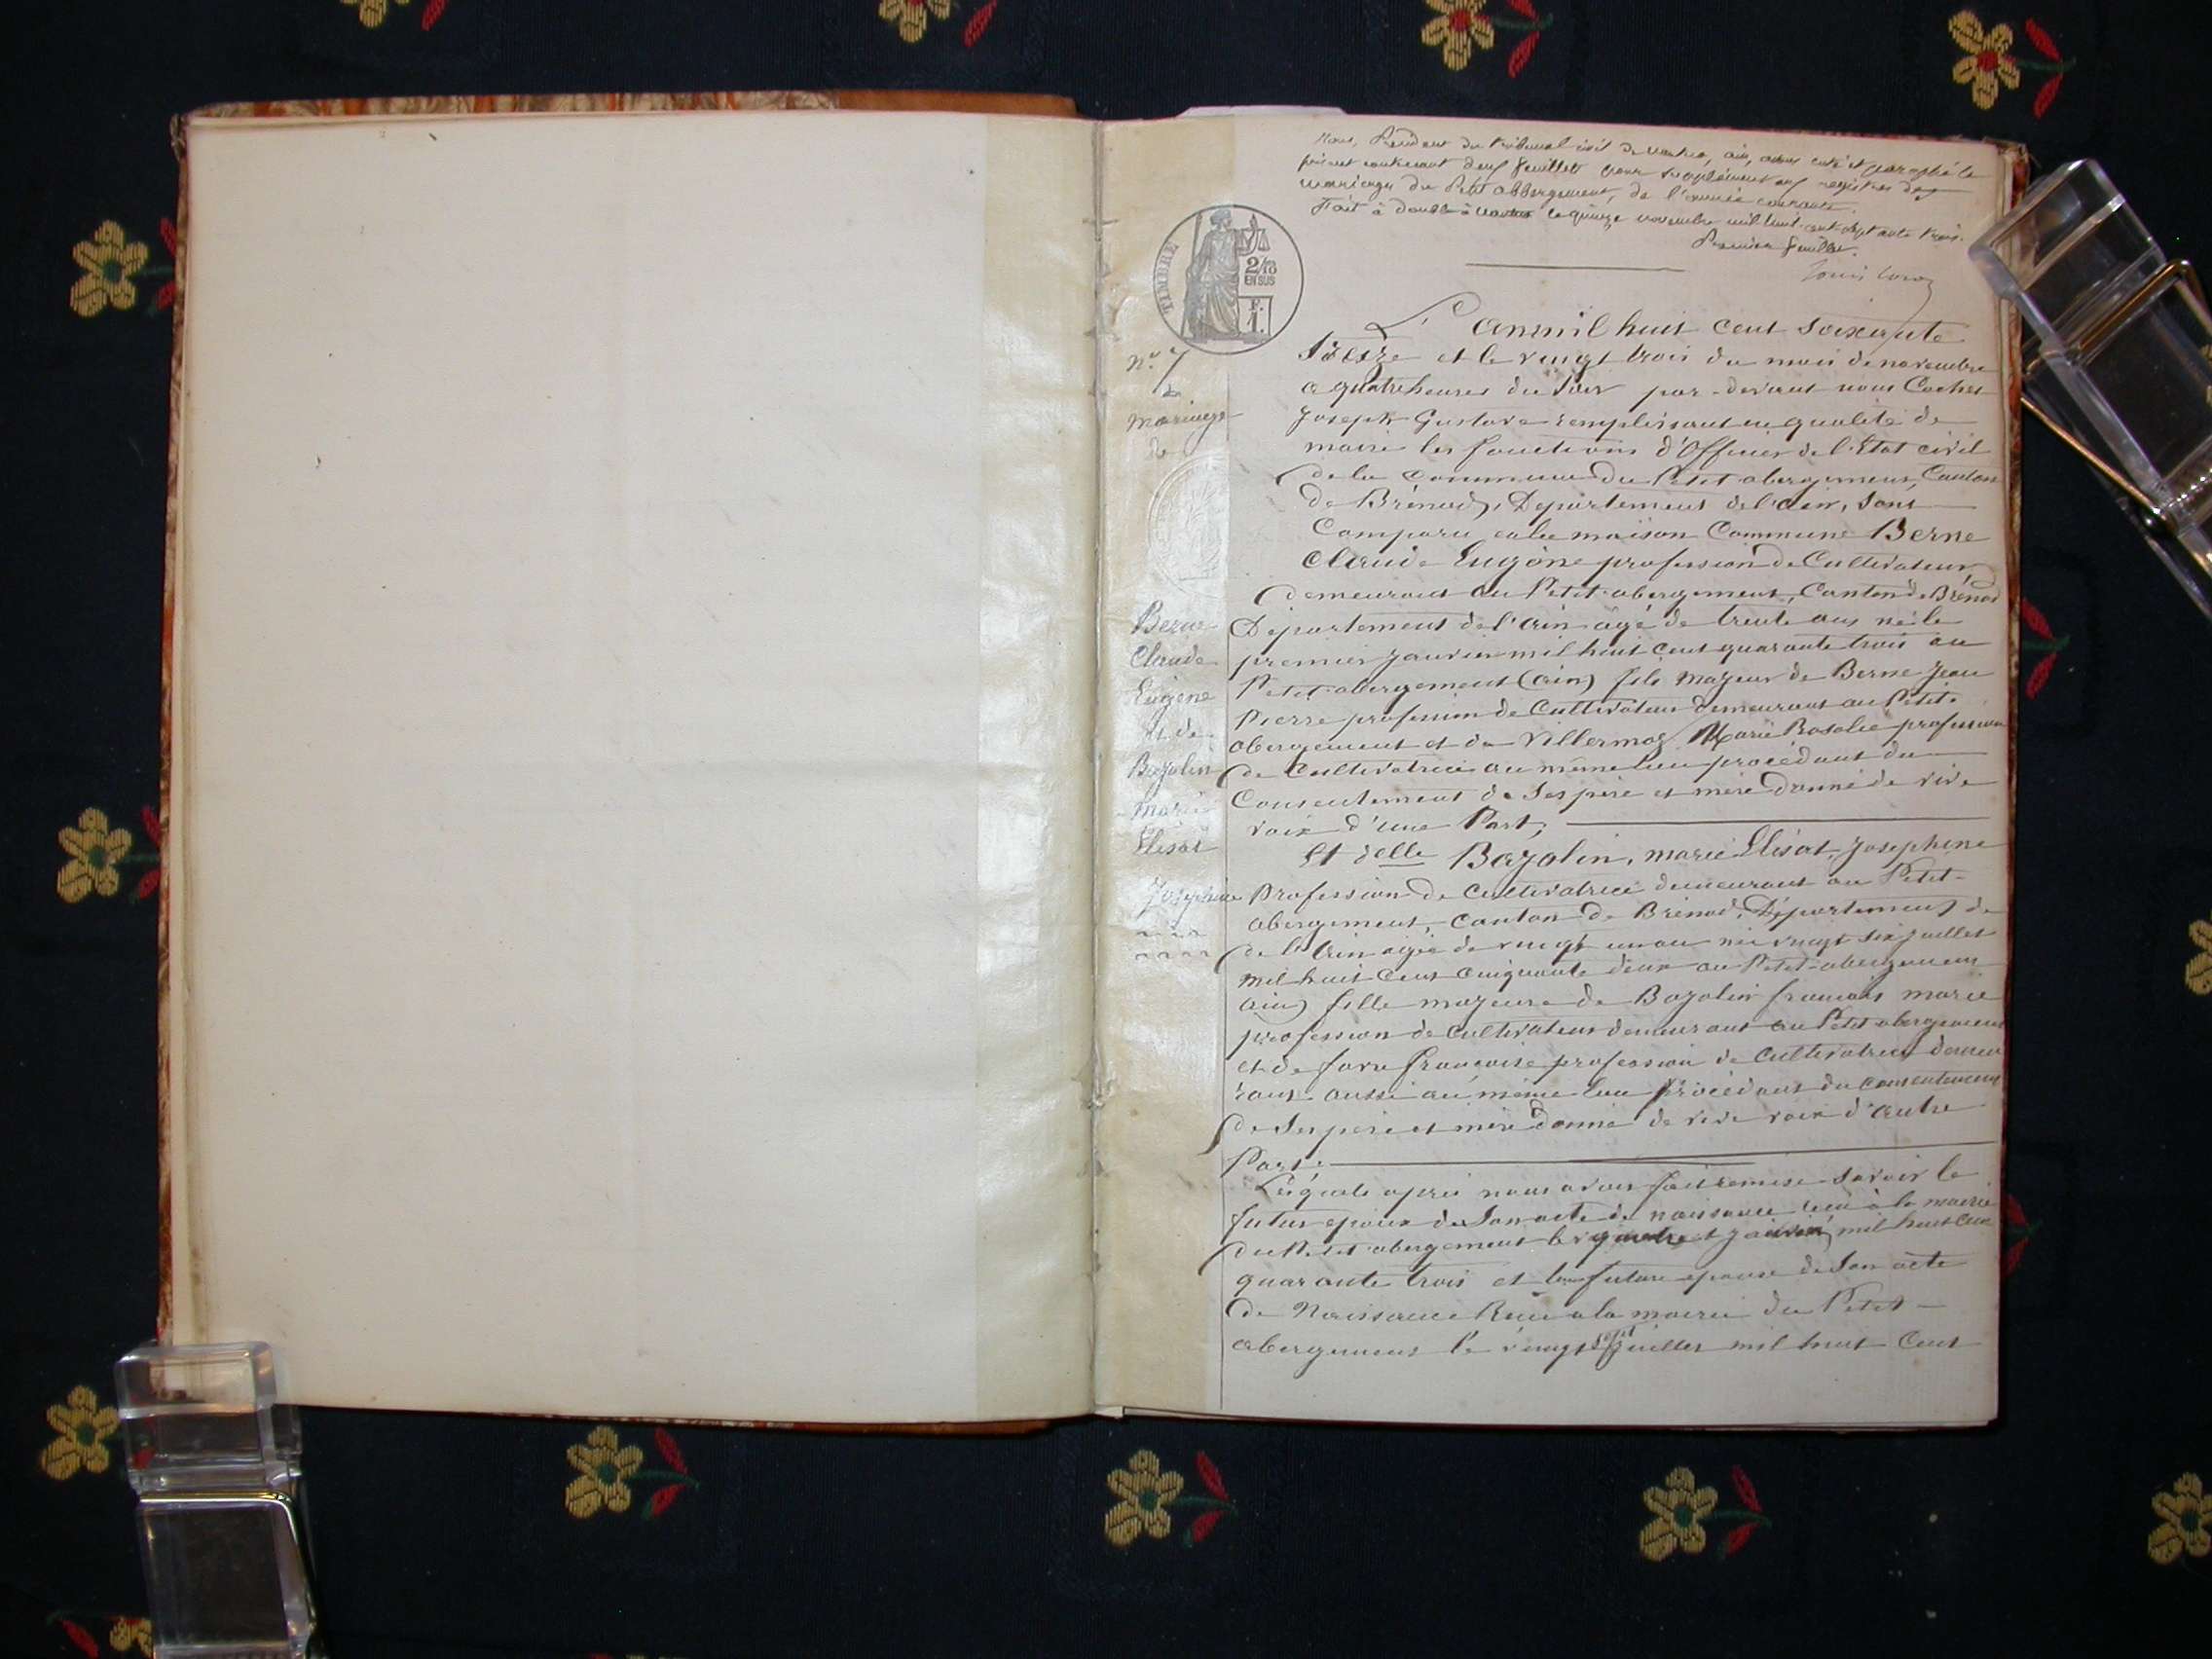 Nous, Président du tribunal civil de Nantua, ain, avons coté et paraphé le
présent contenant deux feuillets pour supplément aux registres des
mariages du Petit abbergement, de l'année courante.
Fait à double à Nantua le quinze novembre mil huit cent septante trois.
Premier feuillet.
TIMBRE
2/10
EN SUS
F.
1.
N° 7
Mariage
de
Berne
Claude
Eugène
et de
Bozolin
Marie
Elisat
Joséphine
L'an mil huit cent soixante
treize et le vingt trois du mois de novembre
a quatre heures du soir par-devant nous Cochet
Joseph Gustave remplissant en qualité de
maire les fonctions d'Officier de l'Etat civil
de la commune du Petit abergement, Canton
de Brénod, Département de l'ain, sont
Comparu en la maison Commune Berne
Claude Eugène profession de Cultivateur
demeurant au Petit-abergement, Canton de Brénod
Département de l'ain âgé de trente ans né le
premier janvier mil huit cent quarante trois au
Petit-abergement (ain) fils majeur de Berne Jean
Pierre profession de Cultivateur demeurant au Petit-
abergement et de Villermoz Marie Rosalie profession
de Cultivatrice au même lieu procédant du
Consentement de ses père et mère donné de vive
voix d'une Part;
Et delle Bozolin, marie Elisat, Josephine
Profession de Cultivatrice demeurant au Petit-
abergement, canton de Brénod, Département de
de l'ain agée de vingt un an née vingt six juillet
mil huit cent cinquante deux au Petit-abergement
ain) fille majeure de Bozolin francois marie
profession de Cultivateur demeurant au Petit abergement
et de françoise profession de Cultivatrice demeu
rant aussi au même lieu procédant du consentement
de ses père et mère donné de vive voix d'autre
Part:
Lesquels après nous avoir fait remise savoir le
futur epoux de son acte de naissance reçu à la mairie
du Petit abergement le janvier mil huit cent
quarante trois et la future epouse de son acte
de Naissance Reçu a la mairie du Petit-
abergement le vingt sept juillet mil huit Cent